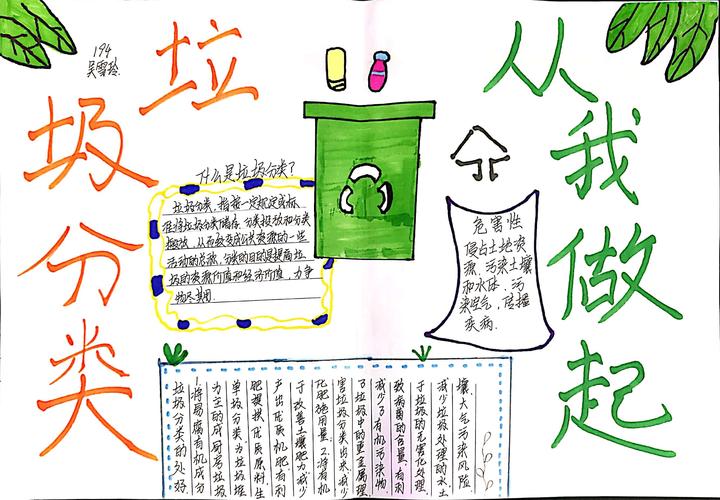 194
吴雪玲
垃
圾
分
类
从
我
做
起
什么是垃圾分类?
垃圾分类,指按一定规定或标
准将垃圾分类储存,分类投放和分类
搬运,从而转变成公共资源的一些
活动的总称,分类的目的是提高垃
圾的资源价值和经济价值,力争
物尽其用.
危害性
侵占土地资
源,污染土壤
和水体,污
染空气,传播
疾病.
垃圾分类的处好
1.将易腐有机成分
为主的成厨房垃圾
单圾分类,为垃圾堆
肥提提优质原料,生
产出优质机肥,有利
于改善土壤肥力减少
化肥施用量.2.将有机
害垃圾分类出来,减少
了垃圾中的重金属理
减少了有机污染物,
致病菌的含量,有利
于垃圾的无害化处理,
减少垃圾处理的水土
壤、大气污染风险